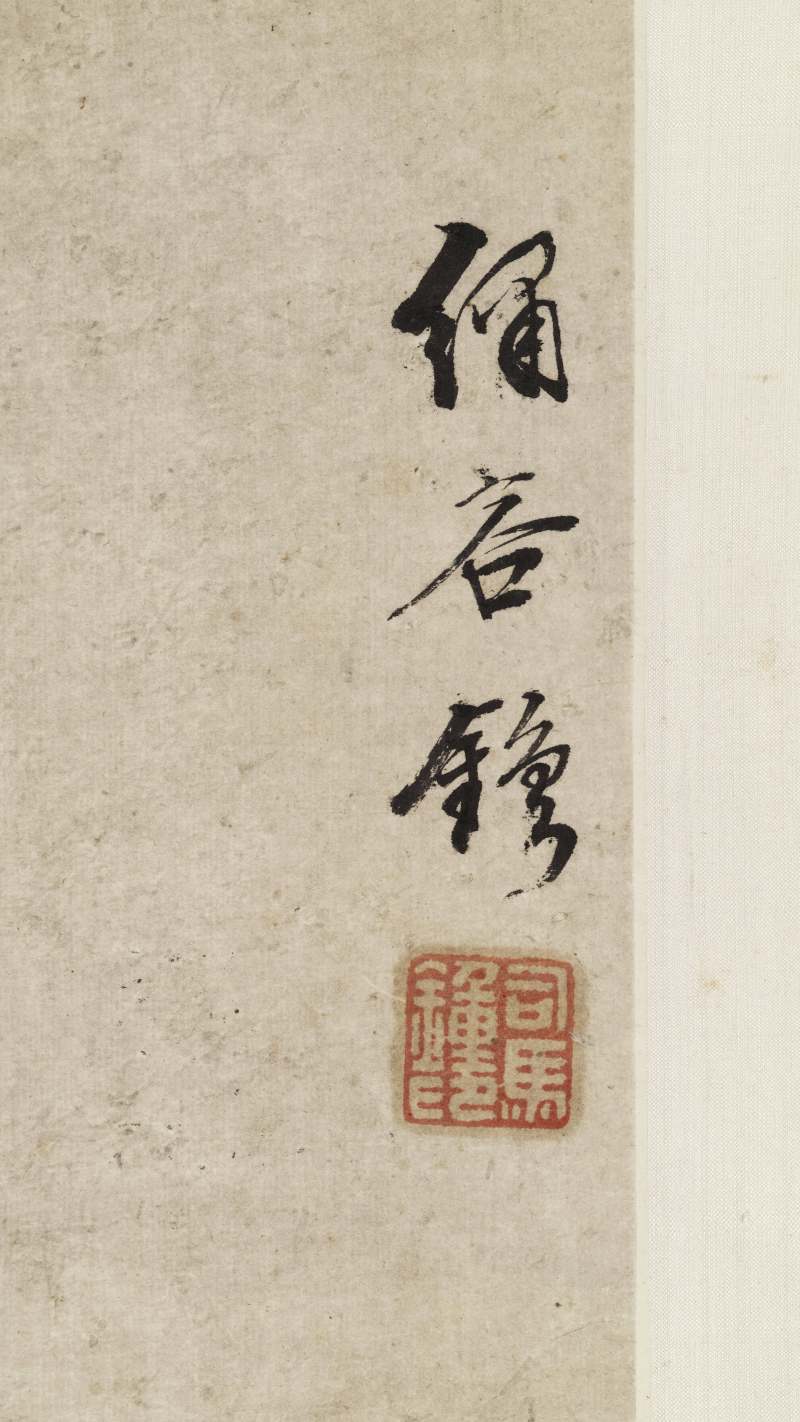 繡谷鍾
司馬
鍾印